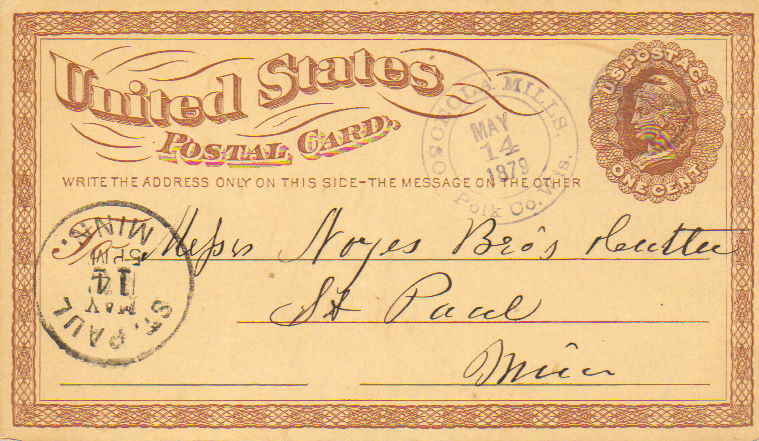 United States
POSTAL CARD.
WRITE THE ADDRESS ONLY ON THIS SIDE-THE MESSAGE ON THE OTHER
U.S. POSTAGE
ONE CENT
OSCEOLA MILLS,
MAY
14
1879
Polk Co. Wis.
To Messrs Noyes Bro's & Cutler
St Paul
Minn
ST. PAUL
MAY
14
5 PM
MINN.